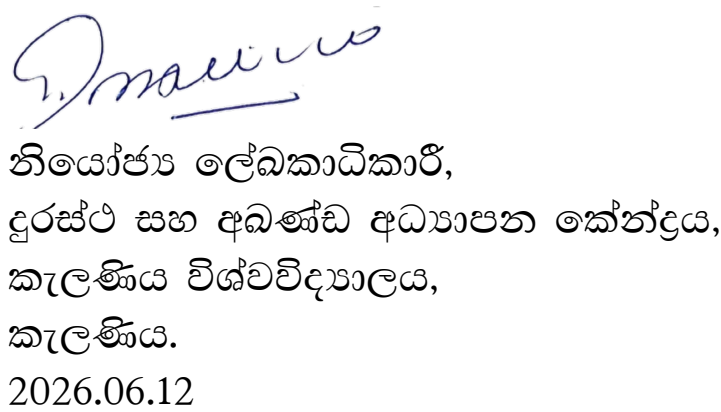 නියෝජ්‍ය ලේඛකාධිකාරී,
දුරස්ථ සහ අඛණ්ඩ අධ්‍යාපන කේන්ද්‍රය,
කැලණිය විශ්වවිද්‍යාලය,
කැලණිය.
2026.06.12